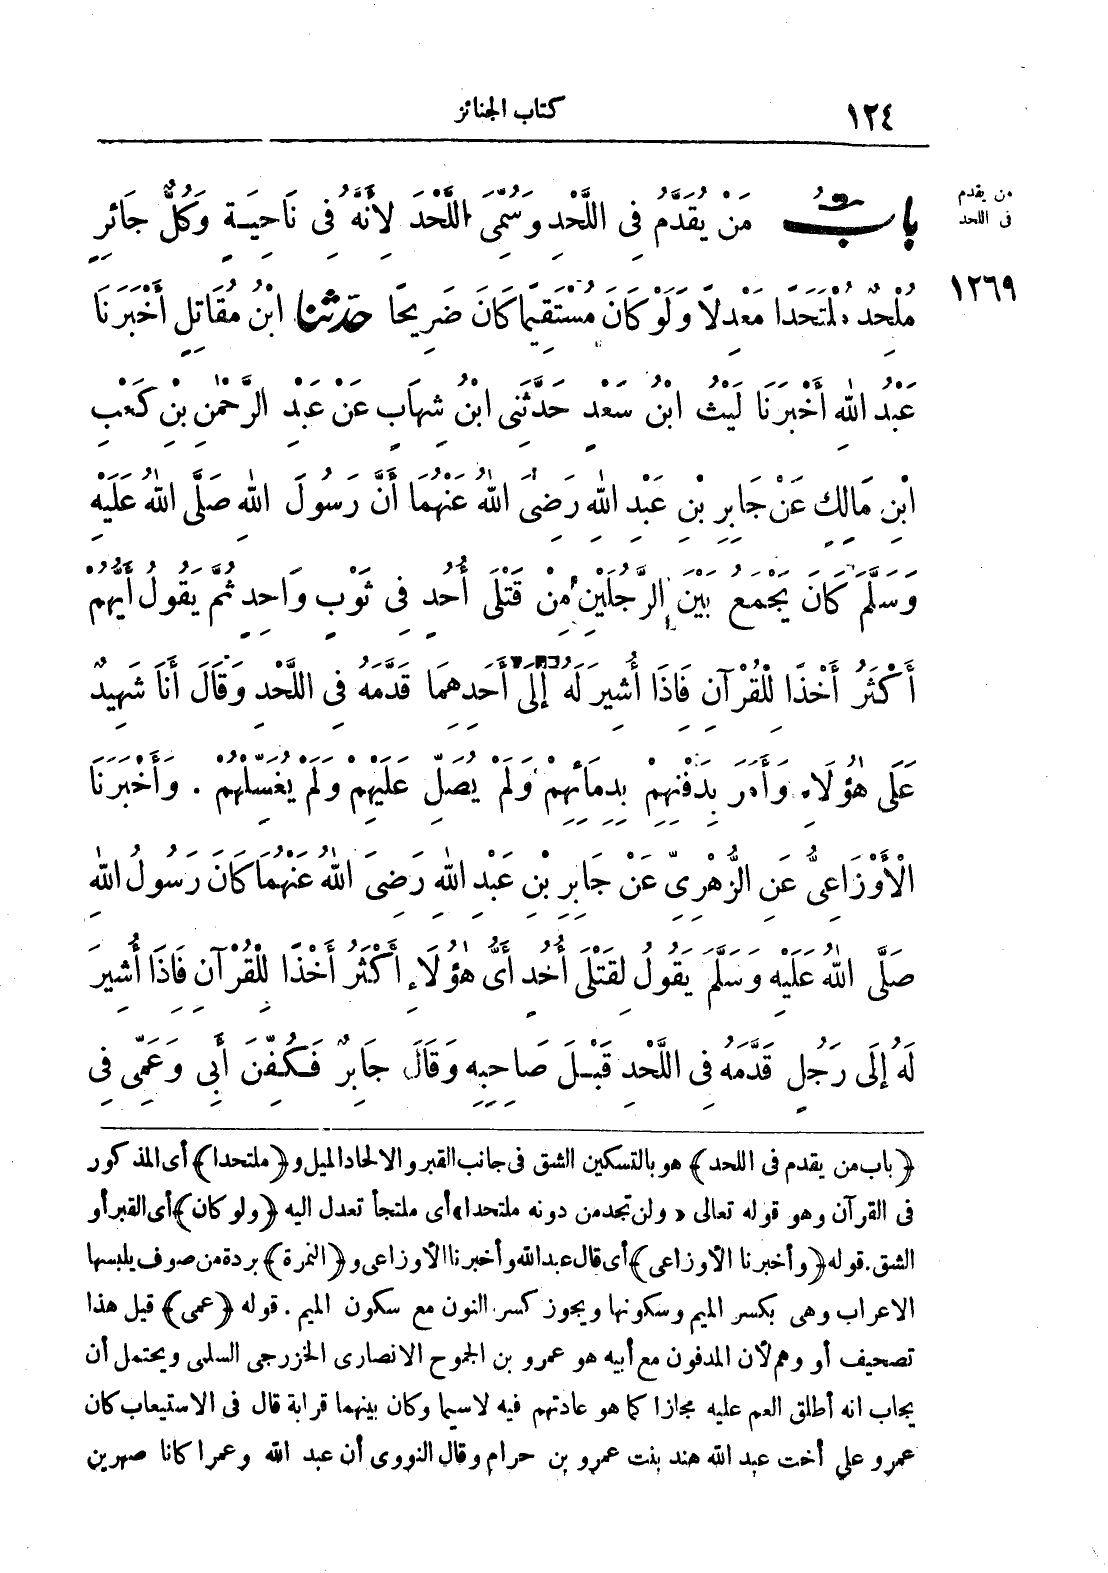 ١٢٤
كتاب الجنائز
من يقدم
فى اللحد
١٢٦٩
بَابُ مَنْ يُقَدَّمُ فِى اللَّحْدِ وَسُمِّىَ اللَّحْدَ لِأَنَّهُ فِى نَاحِيَةٍ وَكُلُّ جَائِرٍ
مُلْحِدٌ مُلْتَحَدًا مَعْدِلًا وَلَوْ كَانَ مُسْتَقِيمًا كَانَ ضَرِيحًا حدّثنا ابْنُ مُقَاتِلٍ أَخْبَرَنَا
عَبْدُ اللهِ أَخْبَرَنَا لَيْثُ ابْنُ سَعْدٍ حَدَّثَنِى ابْنُ شِهَابٍ عَنْ عَبْدِ الرَّحْمٰنِ بْنِ كَعْبِ
ابْنِ مَالِكٍ عَنْ جَابِرِ بْنِ عَبْدِ اللهِ رَضِىَ اللهُ عَنْهُمَا أَنَّ رَسُولَ اللهِ صَلَّى اللهُ عَلَيْهِ
وَسَلَّمَ كَانَ يَجْمَعُ بَيْنَ الرَّجُلَيْنِ مِنْ قَتْلَى أُحُدٍ فِى ثَوْبٍ وَاحِدٍ ثُمَّ يَقُولُ أَيُّهُمْ
أَكْثَرُ أَخْذًا لِلْقُرْآنِ فَاذَا أُشِيرَ لَهُ إِلَى أَحَدِهِمَا قَدَّمَهُ فِى اللَّحْدِ وَقَالَ أَنَا شَهِيدٌ
عَلَى هٰؤُلَاءِ وَأَمَرَ بِدَفْنِهِمْ بِدِمَائِهِمْ وَلَمْ يُصَلِّ عَلَيْهِمْ وَلَمْ يُغَسِّلْهُمْ . وَأَخْبَرَنَا
الْأَوْزَاعِىُّ عَنِ الزُّهْرِىِّ عَنْ جَابِرِ بْنِ عَبْدِ اللهِ رَضِىَ اللهُ عَنْهُمَا كَانَ رَسُولُ اللهِ
صَلَّى اللهُ عَلَيْهِ وَسَلَّمَ يَقُولُ لِقَتْلَى أُحُدٍ أَىُّ هٰؤُلَاءِ أَكْثَرُ أَخْذًا لِلْقُرْآنِ فَاذَا أُشِيرَ
لَهُ إِلَى رَجُلٍ قَدَّمَهُ فِى اللَّحْدِ قَبْلَ صَاحِبِهِ وَقَالَ جَابِرٌ فَكُفِّنَ أَبِى وَعَمِّى فِى
﴿باب من يقدم فى اللحد﴾ هو بالتسكين الشق فى جانب القبر والالحاد الميل و﴿ملتحدا﴾ أى المذكور
فى القرآن وهو قوله تعالى «ولن تجد من دونه ملتحدا» أى ملتجأ تعدل اليه ﴿ولو كان﴾ أى القبر أو
الشق. قوله ﴿وأخبرنا الأوزاعى﴾ أى قال عبدالله وأخبرنا الأوزاعى و﴿النمرة﴾ بردة من صوف يلبسها
الاعراب وهى بكسر الميم وسكونها ويجوز كسر النون مع سكون الميم . قوله ﴿عمى﴾ قيل هذا
تصحيف أو وهم لأن المدفون مع أبيه هو عمرو بن الجموح الانصارى الخزرجى السلمى ويحتمل أن
يجاب انه أطلق العم عليه مجازا كما هو عادتهم فيه لاسيما وكان بينهما قرابة قال فى الاستيعاب كان
عمرو على أخت عبد الله هند بنت عمرو بن حرام وقال النووى أن عبد الله وعمرا كانا صهرين